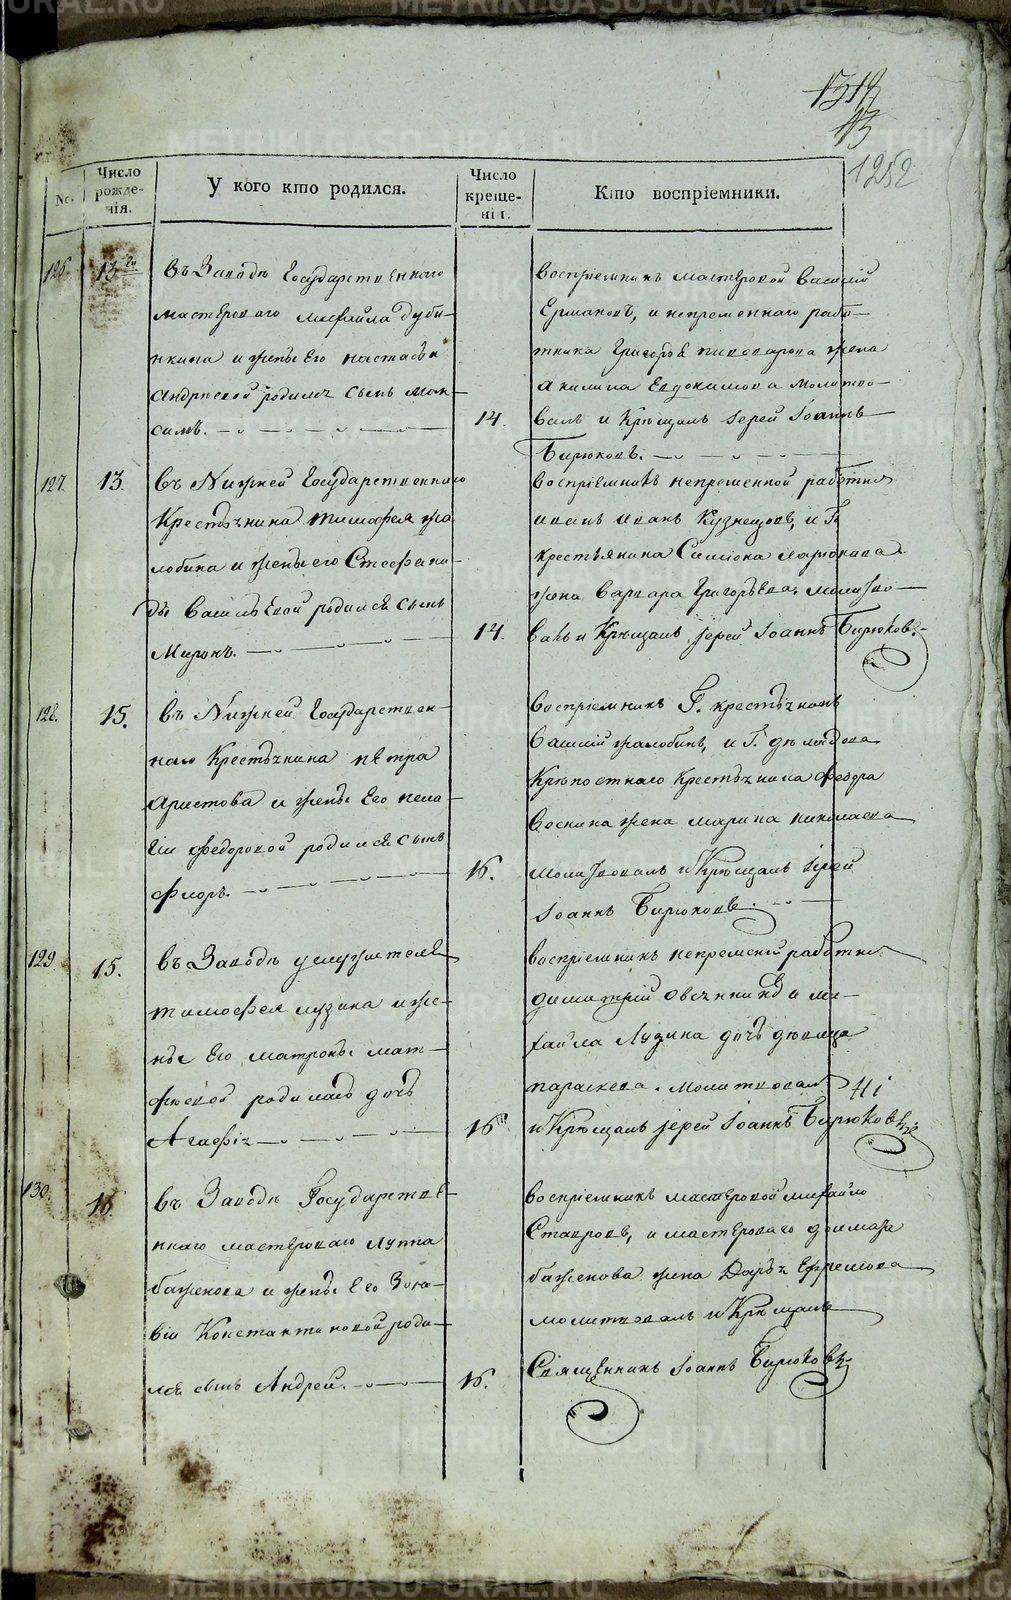 1319
13
1252
№.
Число рожденія.
У кого кто родился.
Число крещенія.
Кто воспріемники.
126. 13го
въ Заводѣ Государственнаго
мастероваго михайла дуби-
нкина и жены Его настасьи
андрѣевой родился сынъ мак-
симъ.
14.
воспріемникъ мастеровой василій
Ермаковъ, и непременнаго рабо-
тника Григорья пивоварова жена
акилина Евдокимова молитво-
валъ и Крѣщалъ Іерей Іоаннъ
Бирюковъ.
127. 13.
въ Нижней Государственнаго
Крестьянина тимофея жа
лобина и жены его Стефани-
ды Васильевой родился сынъ
Миронъ.
14.
воспріемникъ непременной работни
иванъ Кузнецовъ, и Г.
крестьянина Симіона
жена Варвара Григорьева. молитво-
валъ и Крѣщалъ іерей Іоаннъ Бирюковъ.
128. 15.
въ Нижней Государствен-
наго Крестьянина петра
аристова и жены Его пела-
гіи федоровой родился сынъ
флоръ.
16.
воспріемникъ Г. крестьянинъ
Василій жалобинъ, и Г. демидова
Крѣпостнаго Крестьянина федора
Воснина жена марина николаева
молитвовалъ и Крѣщалъ іерей
Іоаннъ Бирюковъ.
129. 15.
въ Заводѣ у служителя
тимофея лузина и же-
ны Его матроны мат-
фѣевой родилась дочь
Агафія
16.
воспріемникъ непременій работни
димитрій овчинниковъ и ми-
хайла Лузина дочь дѣвица
параскева. молитвовалъ
и Крѣщалъ іерей Іоаннъ Бирюковъ
130. 16
въ Заводѣ Государстве-
ннаго мастероваго Луппа
баженова и жены Его Зино-
віи Константиновой роди-
лся сынъ Андрей.
16.
воспріемникъ мастеровой михайло
Ставровъ, и мастероваго
баженова жена Дарья Ефремова
молитвовалъ и Крѣщалъ
Священникъ Іоаннъ Бирюковъ
METRIKI.GASO-URAL.RU